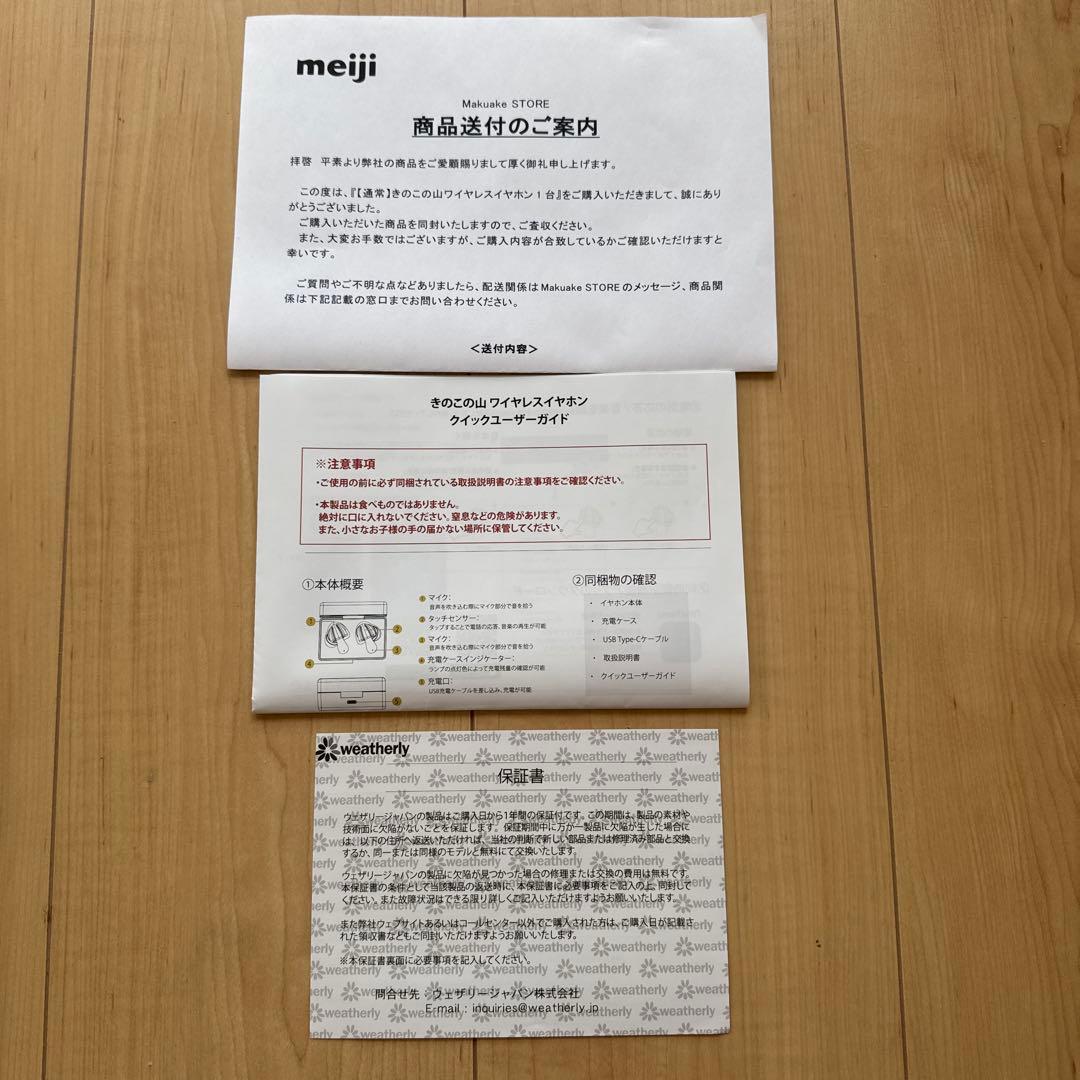 meiji
Makuake STORE
商品送付のご案内
拝啓 平素より弊社の商品をご愛顧賜りまして厚く御礼申し上げます。
この度は、『【通常】きのこの山ワイヤレスイヤホン1台』をご購入いただきまして、誠にあり
がとうございました。
ご購入いただいた商品を同封いたしますので、ご査収ください。
また、大変お手数ではございますが、ご購入内容が合致しているかご確認いただけますと
幸いです。
ご質問やご不明な点などありましたら、配送関係はMakuake STOREのメッセージ、商品関
係は下記記載の窓口までお問い合わせください。
＜送付内容＞
きのこの山 ワイヤレスイヤホン
クイックユーザーガイド
※注意事項
・ご使用の前に必ず同梱されている取扱説明書の注意事項をご確認ください。
・本製品は食べものではありません。
絶対に口に入れないでください。窒息などの危険があります。
また、小さなお子様の手の届かない場所に保管してください。
①本体概要
1 マイク：
音声を吹き込む際にマイク部分で音を拾う
2 タッチセンサー：
タップすることで電話の応答、音楽の再生が可能
3 マイク：
音声を吹き込む際にマイク部分で音を拾う
4 充電ケースインジケーター：
ランプの点灯色によって充電残量の確認が可能
5 充電口：
USB充電ケーブルを差し込み、充電が可能
1
2
3
4
5
②同梱物の確認
・ イヤホン本体
・ 充電ケース
・ USB Type-Cケーブル
・ 取扱説明書
・ クイックユーザーガイド
weatherly
保証書
ウェザリージャパンの製品はご購入日から1年間の保証付です。この期間は、製品の素材や
技術面に欠陥がないことを保証します。保証期間中に万が一製品に欠陥が生じた場合に
は、以下の住所へ返送いただければ、当社の判断で新しい部品または修理済み部品と交換
するか、同一または同様のモデルと無料にて交換いたします。
ウェザリージャパンの製品に欠陥が見つかった場合の修理または交換の費用は無料です。
本保証書の条件として当該製品の返送時に、本保証書に必要事項をご記入の上、同封して
ください。また故障状況はできる限り詳しくご記入いただけますようお願いいたします。
また弊社ウェブサイトあるいはコールセンター以外でご購入された方は、ご購入日が記載さ
れた領収書などもご同封いただけますようお願いいたします。
※本保証書裏面に必要事項を記入してください。
問合せ先：ウェザリージャパン株式会社
E-mail : inquiries@weatherly.jp